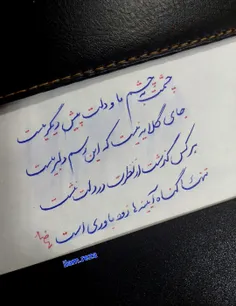 چشمت به چشم ما و دلت پیش دیگریست
جای گلایه نیست که این رسم دلبریست
هرکس گذشت از نظرت در دلت نشست
تنها گناه آینه‌ها زود باوری است